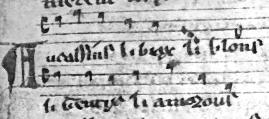 Aucassins li biax li blons
li gentix li amorous